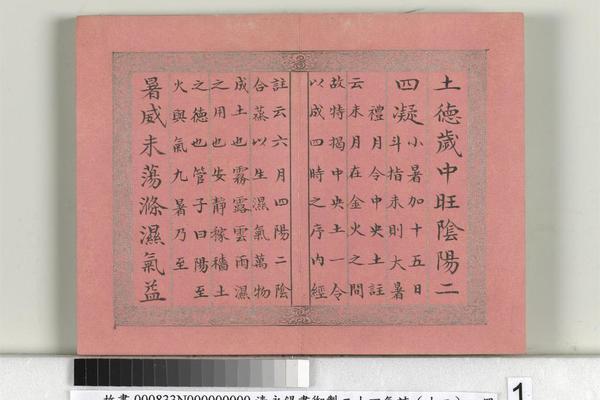 土德歲中旺陰陽二
四凝
小暑加十五日
斗指未則大暑
禮月令中央土註
云未月在金火之間
故特揭中央土一令
以成四時之序內經
註云六月四陽二陰
合蒸以生濕氣萬物
成土也霧露雲雨濕
之用也安靜稼穡土
之德也管子曰陽至
火與氣九暑乃至
暑威未蕩滌濕氣益
故書 000833N000000000
1